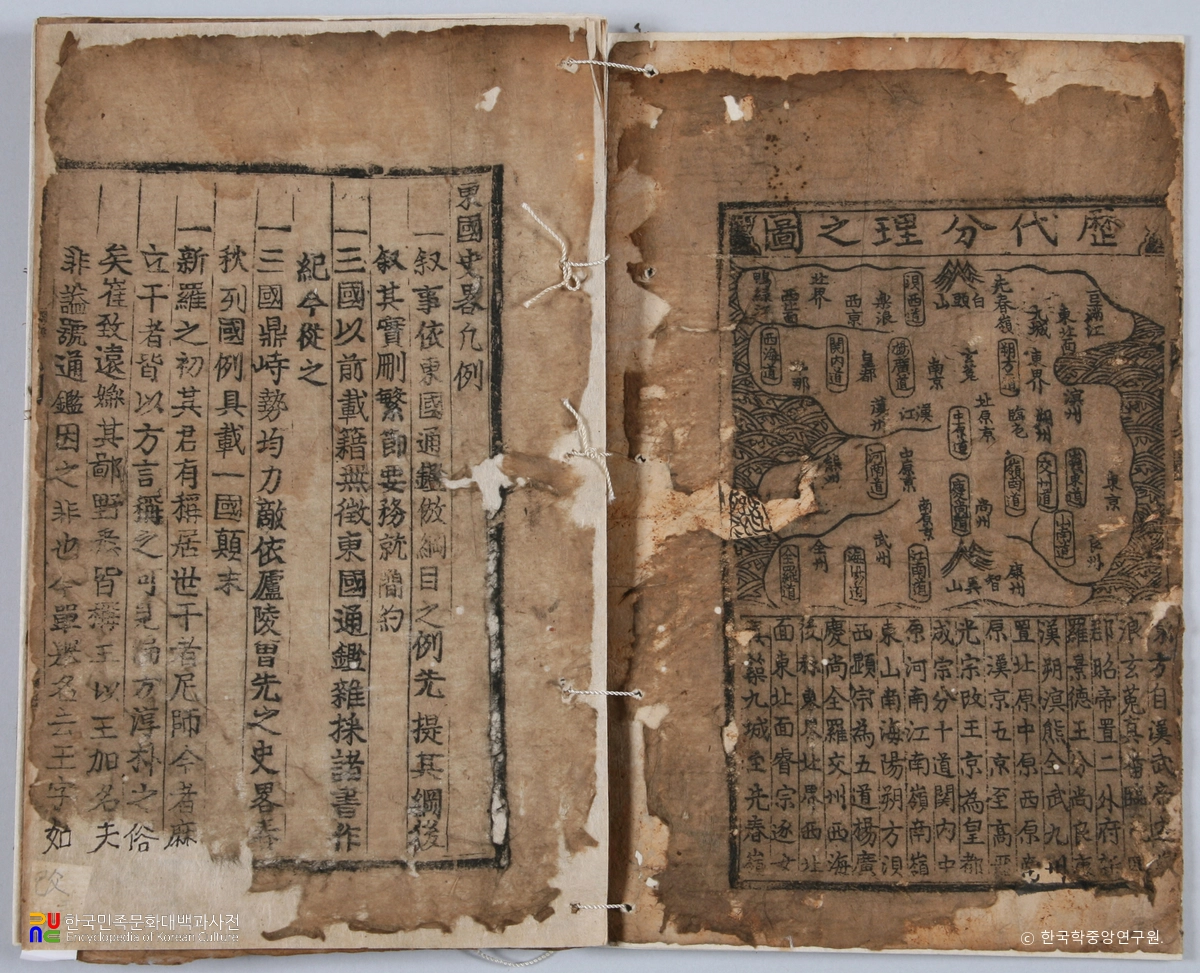 歷代分理之圖
豆滿江
東界
先春嶺
白
山
浿西道
樂浪
西京
北界
鴨綠江
朔方道
玄菟
南京
楊廣道
關內道
西海道
溟州
朔州
北原京
漢江
漢州
中原道
東京
嶺東道
交州道
嶺南道
尚州
慶尚道
南原京
河南道
熊州
山南道
良州
康州
智異山
江南道
武州
全州
全羅道
方自漢武帝
浪玄菟真番臨
郡昭帝置二外府新
羅景德王分尚良康
漢朔溟熊全武九州
置北原中原西原南
原漢京五京至高麗
光宗改王京為皇都
成宗分十道関内中
原河南江南嶺南嶺
東山南海陽朔方浿
西顯宗為五道楊廣
慶尚全羅交州西海
後称東界北界西北
面東北面睿宗逐女
真築九城至先春嶺
東國史畧凡例
一叙事依東國通鑑倣綱目之例先提其綱後
叙其實刪繁節要務就簡約
一三國以前載籍無徵東國通鑑雜採諸書作
紀今從之
一三國鼎峙勢均力敵依廬陵曾先之史畧春
秋列國例具載一國顛末
一新羅之初其君有稱居世干者尼師今者麻
立干者皆以方言稱之可見當方淳朴之俗
矣崔致遠嫌其鄙野矣皆稱王以王加名夫
非謚號通鑑因之非也今單書名去王字如
한국민족문화대백과사전
Encyclopedia of Korean Culture
© 한국학중앙연구원.